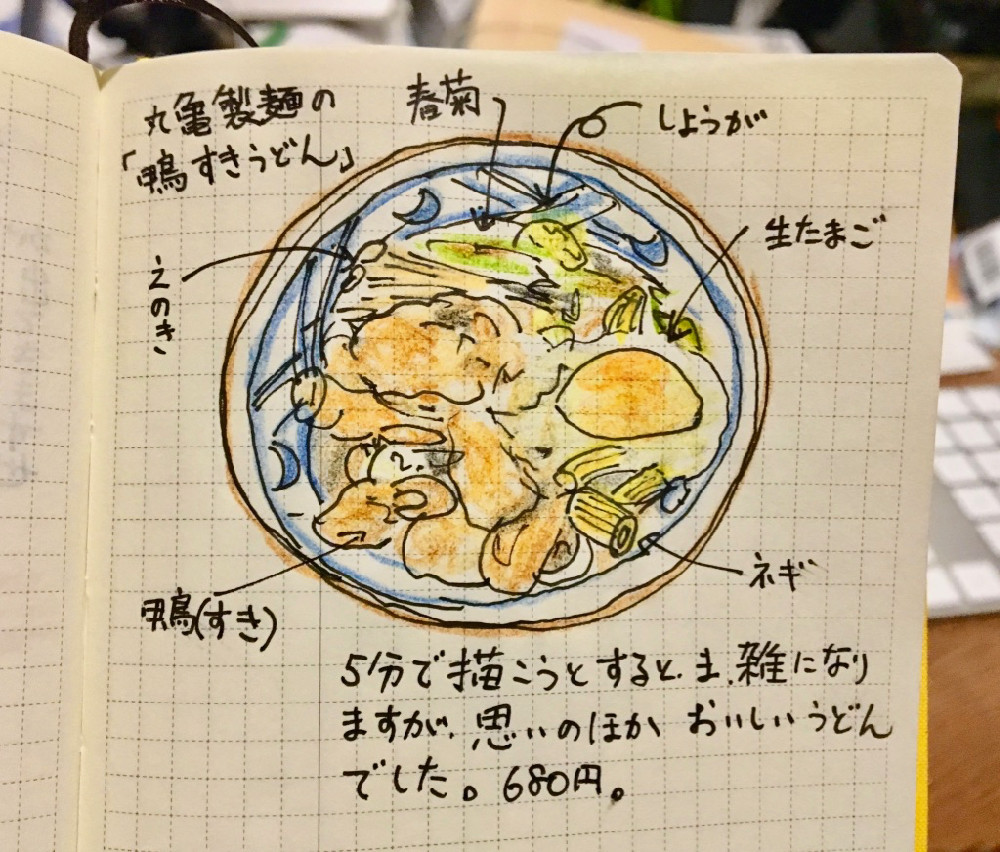 丸亀製麺の
「鴨すきうどん」
春菊
しょうが
生たまご
えのき
ネギ
鴨(すき)
5分で描こうとすると、ま、雑になり
ますが、思いのほか おいしいうどん
でした。680円。